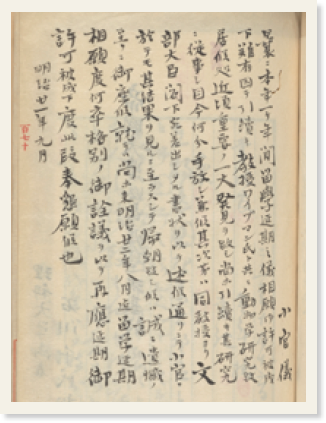 小官儀
曩ニ本年一ケ年間留學延期之儀相願候許可被成
下難有因テ引續キ教授ワイブマン氏ト共ニ動物学研究致
居候処近頃重要ノ一大発見ヲ致シ尚ホ引續キ其研究
ニ従事シ目今何分手放シ兼候其次第ハ同教授ヨリ文
部大臣閣下宛差出シタル書状ヲ以テ述候通リニテ小官ニ
於テモ其結果ヲ見ルニ至ラズシテ帰朝致シ候ハ誠ニ遺憾
ニ御座候就テハ尚ホ来明治廿二年八月迄留学延期
相願度何卒格別ノ御詮議ヲ以テ再應延期御
許可被成下度此段奉懇願候也
明治廿一年九月
百七十